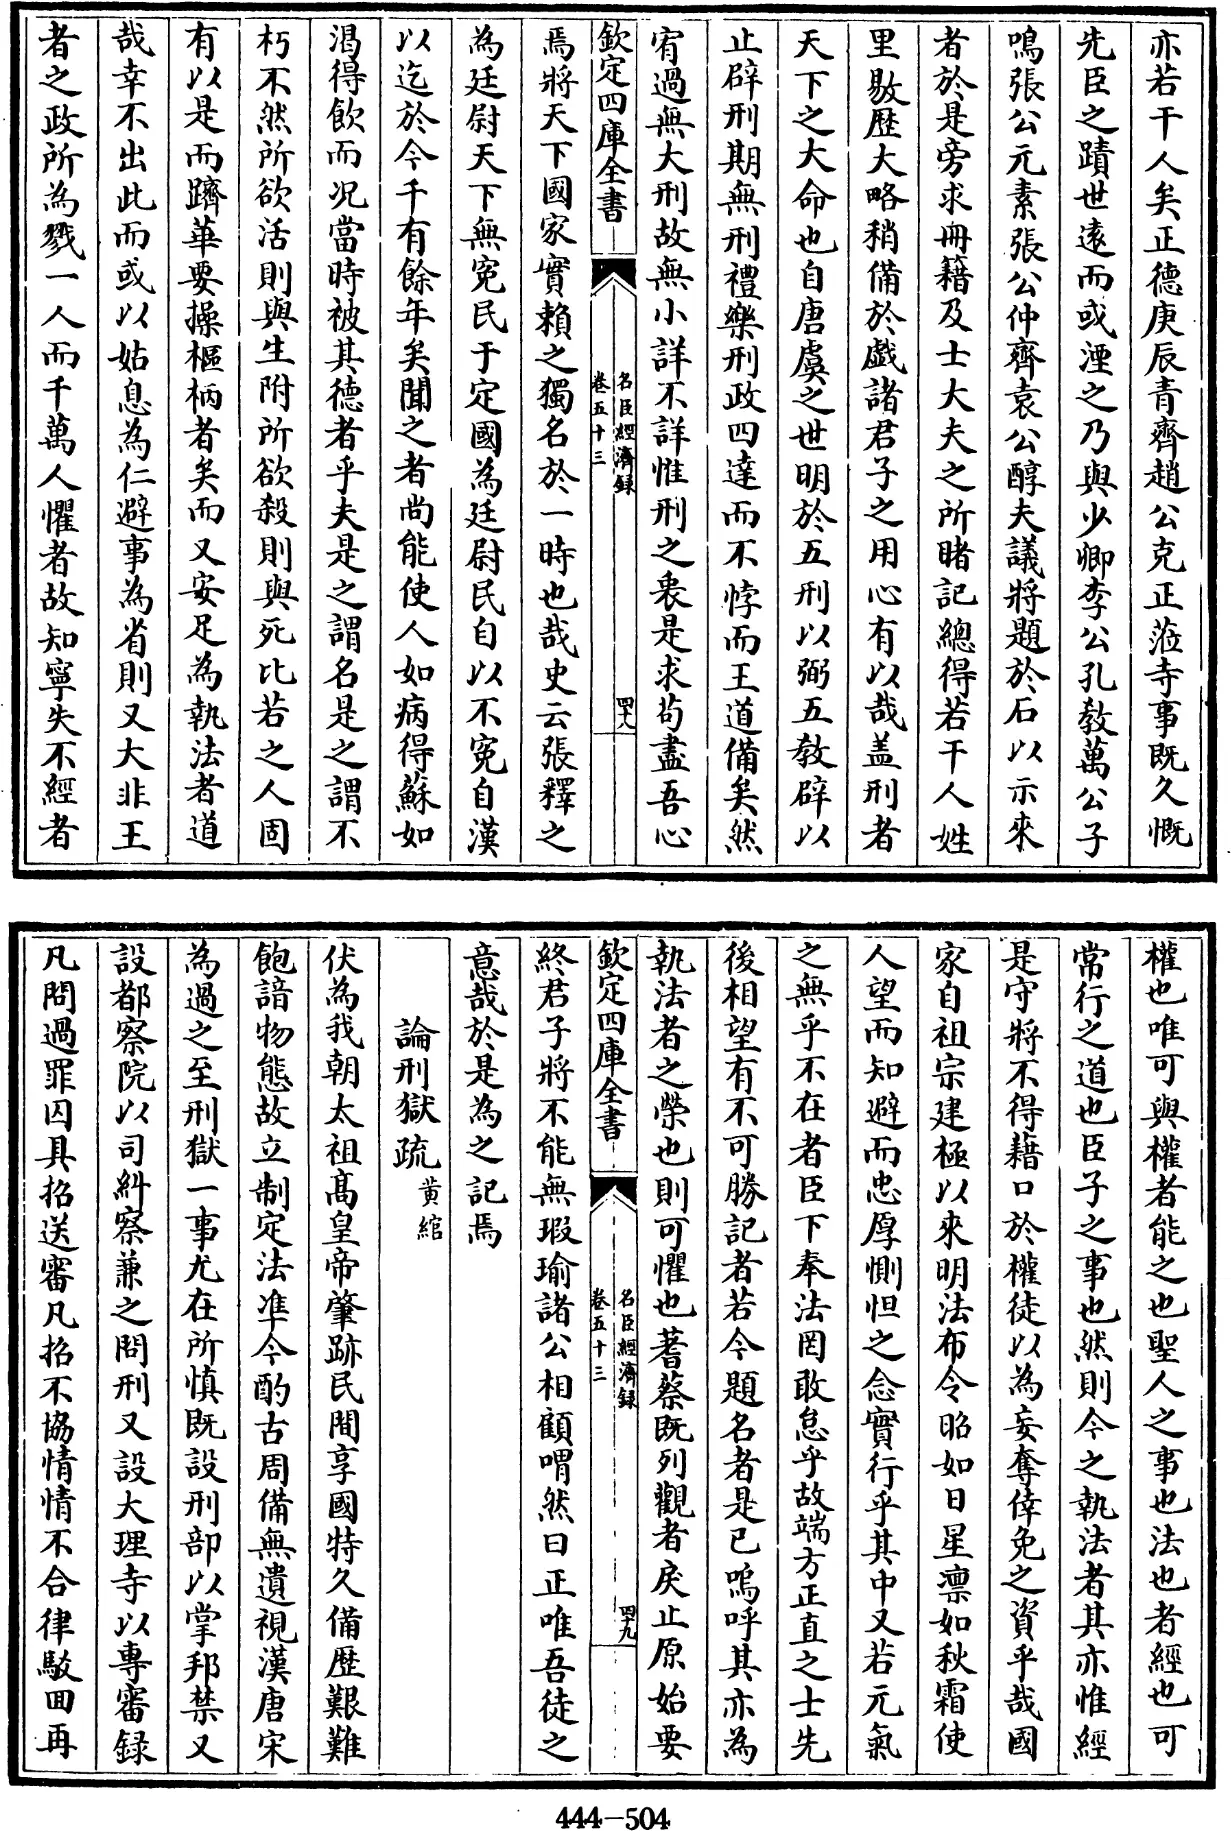 亦若干人矣正德庚辰青齊趙公克正蒞寺事既久慨
先臣之蹟世遠而或湮之乃與少卿李公孔教萬公子
鳴張公元素張公仲齊袁公醇夫議將題於石以示來
者於是旁求冊籍及士大夫之所睹記總得若干人姓
里敭歷大略稍備於戲諸君子之用心有以哉盖刑者
天下之大命也自唐虞之世明於五刑以弼五教辟以
止辟刑期無刑禮樂刑政四達而不悖而王道備矣然
宥過無大刑故無小詳不詳惟刑之衷是求苟盡吾心
欽定四庫全書
名臣經濟録
卷五十三
四十八
焉將天下國家實賴之獨名於一時也哉史云張釋之
為廷尉天下無寃民于定國為廷尉民自以不寃自漢
以迄於今千有餘年矣聞之者尚能使人如病得蘇如
渴得飲而况當時被其德者乎夫是之謂名是之謂不
朽不然所欲活則與生附所欲殺則與死比若之人固
有以是而躋華要操樞柄者矣而又安足為執法者道
哉幸不出此而或以姑息為仁避事為省則又大非王
者之政所為戮一人而千萬人懼者故知寧失不經者
權也唯可與權者能之也聖人之事也法也者經也可
常行之道也臣子之事也然則今之執法者其亦惟經
是守將不得藉口於權徒以為妄奪倖免之資乎哉國
家自祖宗建極以來明法布令昭如日星凛如秋霜使
人望而知避而忠厚惻怛之念實行乎其中又若元氣
之無乎不在者臣下奉法罔敢怠乎故端方正直之士先
後相望有不可勝記者若今題名者是已嗚呼其亦為
執法者之榮也則可懼也蓍蔡既列觀者戾止原始要
欽定四庫全書
名臣經濟録
卷五十三
四十九
終君子將不能無瑕瑜諸公相顧喟然曰正唯吾徒之
意哉於是為之記焉
論刑獄疏 黄綰
伏為我朝太祖髙皇帝肇跡民間享國特久備歴艱難
飽諳物態故立制定法准今酌古周備無遺視漢唐宋
為過之至刑獄一事尤在所慎既設刑部以掌邦禁又
設都察院以司糾察兼之問刑又設大理寺以專審録
凡問過罪囚具招送審凡招不協情情不合律駁回再
444-504